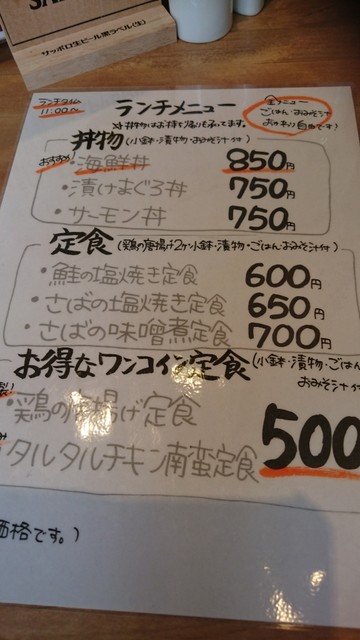 サッポロ生ビール黒ラベル(生)
ランチタイム
11:00〜
ランチメニュー
全メニュー
ごはん・おみそ汁
おかわり自由です!
丼物はお持ち帰りも承ってます。
丼物(小鉢・漬物・おみそ汁付)
おすすめ
・海鮮丼 850円
・漬けまぐろ丼 750円
・サーモン丼 750円
定食(鶏の唐揚げ2ヶ・小鉢・漬物・ごはん・おみそ汁付)
・鮭の塩焼き定食 600円
・さばの塩焼き定食 650円
・さばの味噌煮定食 700円
お得なワンコイン定食(小鉢・漬物・ごはん
おみそ汁付
鶏の唐揚げ定食
タルタルチキン南蛮定食
500
価格です。)